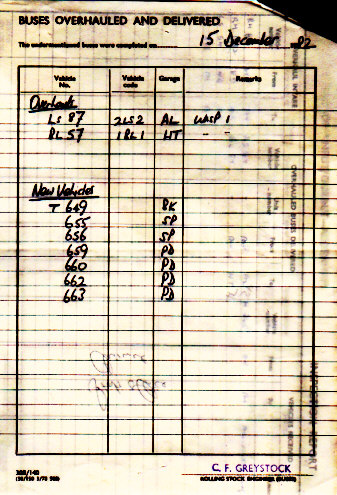 BUSES OVERHAULED AND DELIVERED
The undermentioned buses were completed on 15 December 82
Vehicle No. Vehicle code Garage Remarks
Overhauls
LS 87 2LS2 AL WASP 1
RL 57 1RL1 HT "
New Vehicles
T 649 BK
655 SP
656 SP
659 PD
660 PD
662 PD
663 PD
C. F. GREYSTOCK
ROLLING STOCK ENGINEER (BUSES)